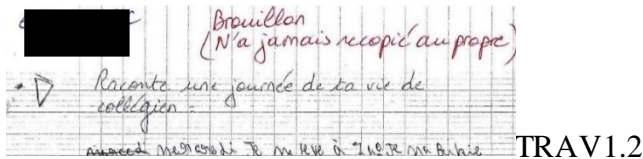 Brouillon
(N'a jamais recopié au propre)
Raconte une journée de ta vie de
collégien :
mercredi Je me lève à 7h0 Je
TRAV1.2